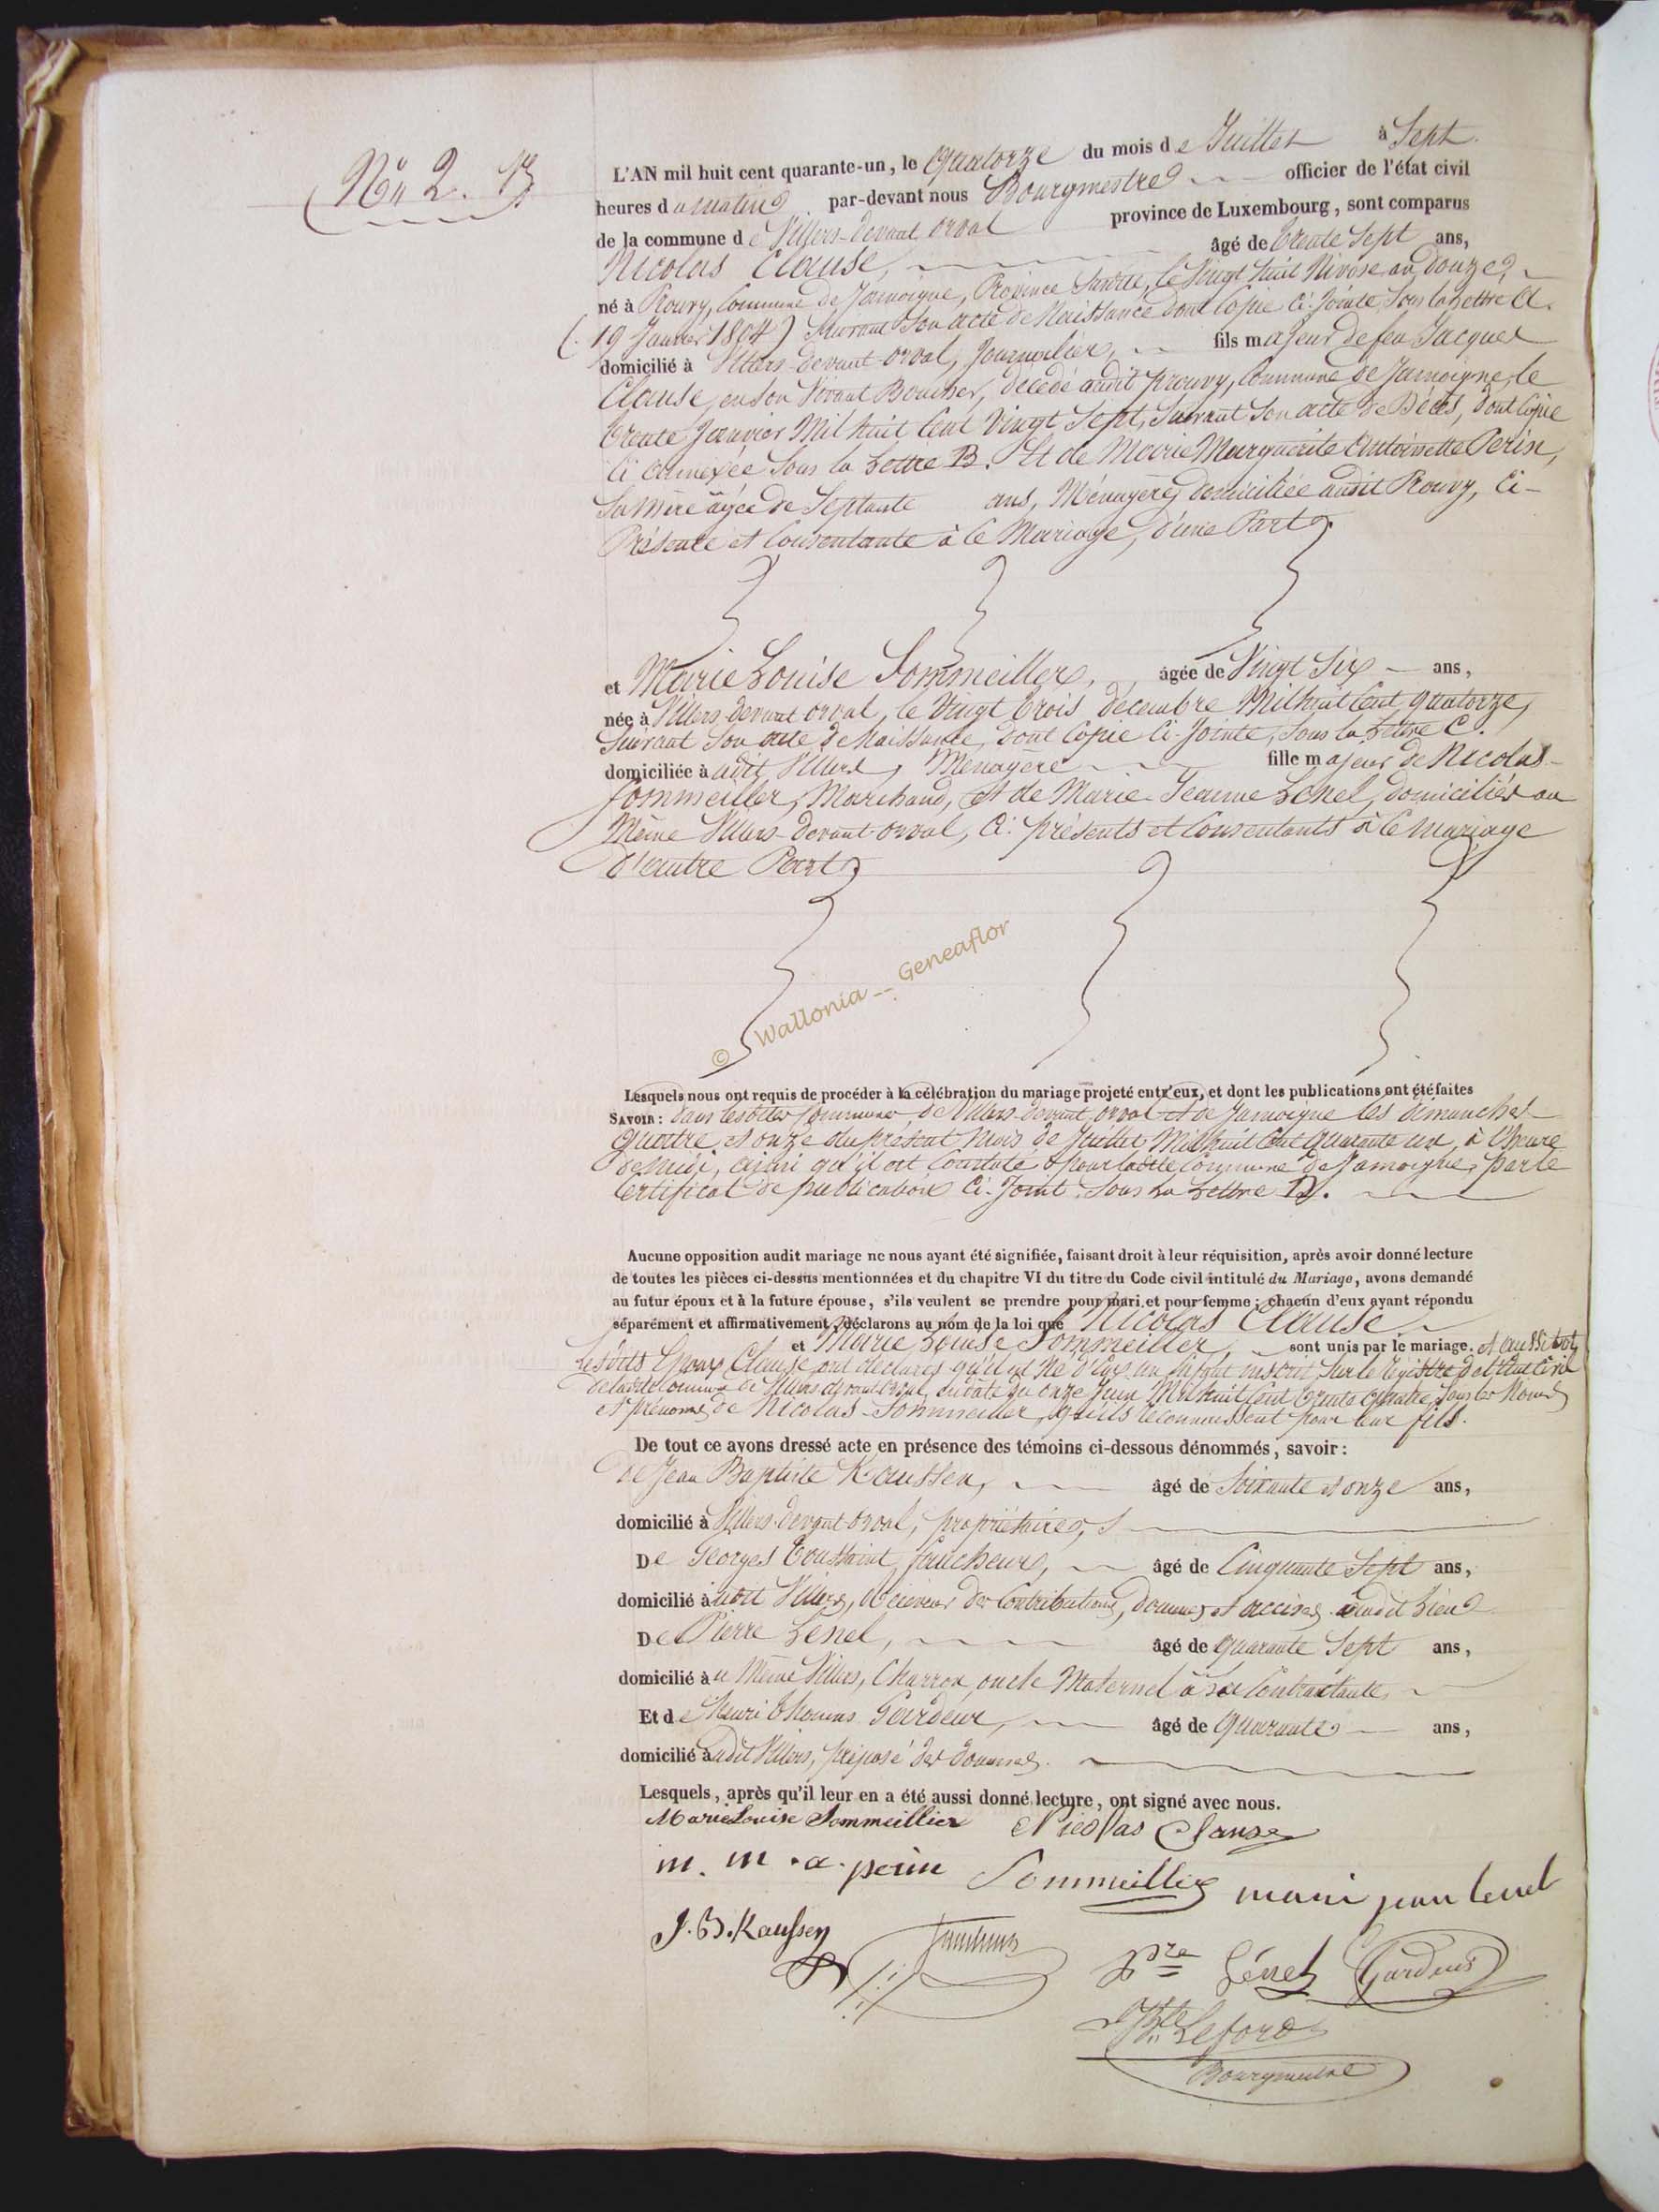 No 2.
L'AN mil huit cent quarante-un, le Quatorze du mois de Juillet à Sept
heures du matin par-devant nous Bourgmestre officier de l'état civil
de la commune de Villers-devant-orval province de Luxembourg, sont comparus
Nicolas Clause, âgé de trente Sept ans,
né à Prouvy, Commune de Jamoigne, Province Susdite, le Vingt huit Nivose an douze
(19 Janvier 1804) Suivant Son acte de Naissance dont Copie Ci-Jointe Sous la Lettre A.
domicilié à Villers-devant-orval, Journalier, fils majeur de feu Jacques
Clause, en Son Vivant Boucher, décédé audit prouvy, Commune de Jamoigne, le
trente Janvier Mil huit Cent Vingt Sept, Suivant Son acte de Décès, dont Copie
Ci annexée Sous la Lettre B. Et de Marie Marguerite Antoinette Perin,
Sa Mère âgée de Septante ans, Ménagère, domiciliée audit Prouvy, Ci-
Présente et Consentante à Ce Mariage, d'une Part.
et Marie Louise Sommeiller, âgée de Vingt Six ans,
née à Villers-devant orval, le Vingt trois décembre Mil huit Cent quatorze,
Suivant Son acte de Naissance, dont Copie Ci-Jointe, Sous la Lettre C.
domiciliée à udit Villers, Ménagère fille majeur de Nicolas
Sommeiller, Marchand, et de Marie Jeanne Lenel, domiciliés au
Même Villers-devant-orval, Ci-présents et Consentants à Ce mariage
d'autre Part
© Wallonia -- Geneaflor
Lesquels nous ont requis de procéder à la célébration du mariage projeté entr'eux, et dont les publications ont été faites
SAVOIR: dans lesdites Communes de Villers-devant-orval et de Jamoigne les dimanches
quatre et onze du présent Mois de Juillet Mil huit Cent quarante un, à l'heure
de Midi, ainsi qu'il est Constaté pour ladite Commune de Jamoigne, par le
Certificat de publication Ci-Joint Sous la Lettre D.
Aucune opposition audit mariage ne nous ayant été signifiée, faisant droit à leur réquisition, après avoir donné lecture
de toutes les pièces ci-dessus mentionnées et du chapitre VI du titre du Code civil intitulé du Mariage, avons demandé
au futur époux et à la future épouse, s'ils veulent se prendre pour mari et pour femme; chacun d'eux ayant répondu
séparément et affirmativement, déclarons au nom de la loi que Nicolas Clause
et Marie Louise Sommeiller, sont unis par le mariage. et aussitot
lesdits Epoux Clause ont declarés qu'il est Né d'Eux un Enfant inscrit Sur le Registre de l'état Civil
de ladite Commune de Villers devant orval, en date du onze Juin Mil huit Cent trente quatre, Sous les Noms
et prénoms de Nicolas Sommeiller, qu'ils reconnaissent pour leur fils.
De tout ce avons dressé acte en présence des témoins ci-dessous dénommés, savoir:
de Jean Baptiste Kaussen, âgé de Soixante et onze ans,
domicilié à Villers-devant orval, propriétaire,
De Georges Toussaint faucheur, âgé de Cinquante Sept ans,
domicilié à udit Villers, Receveur des Contributions, douanes et accises audit Lieu
De Pierre Lenel, âgé de quarante Sept ans,
domicilié au Même Villers, Charron, oncle Maternel à la Contractante,
Et de Henri thomas Gardeur, âgé de quarante ans,
domicilié à udit Villers, préposé des douanes.
Lesquels, après qu'il leur en a été aussi donné lecture, ont signé avec nous.
Marie Louise Sommeillier Nicolas Clause
m. m. a. perin Sommeillier marie jean lenel
J. B. Kaussen Faucheur Pre Lénel Gardeur
Bourgmestre